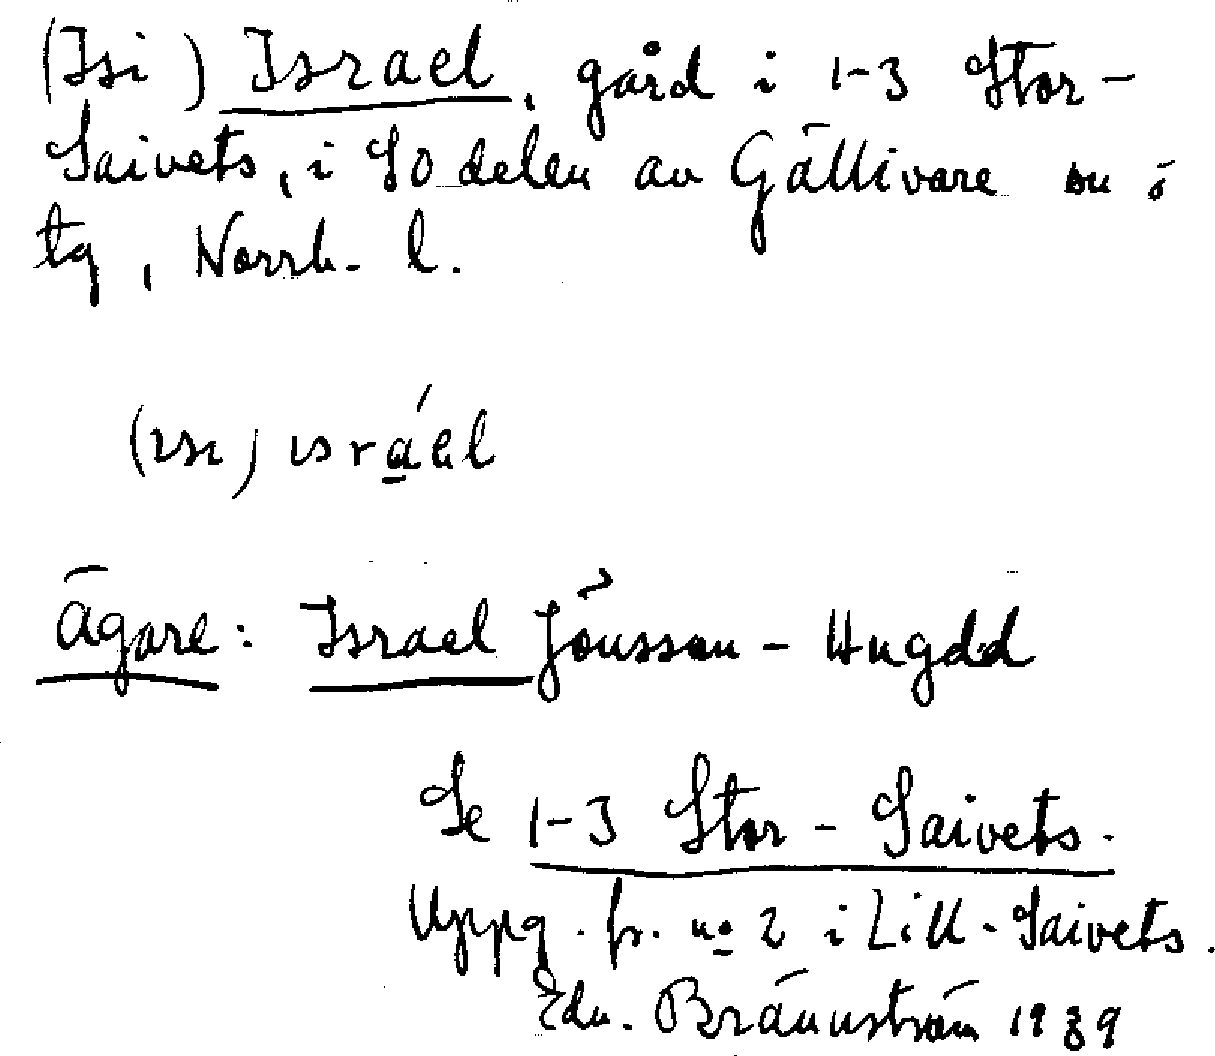 (Isi) Israel, gård i 1-3 Stor-
Saivets, i SO delen av Gällivare sn o
tg, Norrb. l.
(ısı) ısráel
Ägare: Israel Jönsson - Hugdd
Se 1-3 Stor-Saivets.
Uppg. fr. no 2 i Lill-Saivets.
Edv. Brännström 1939